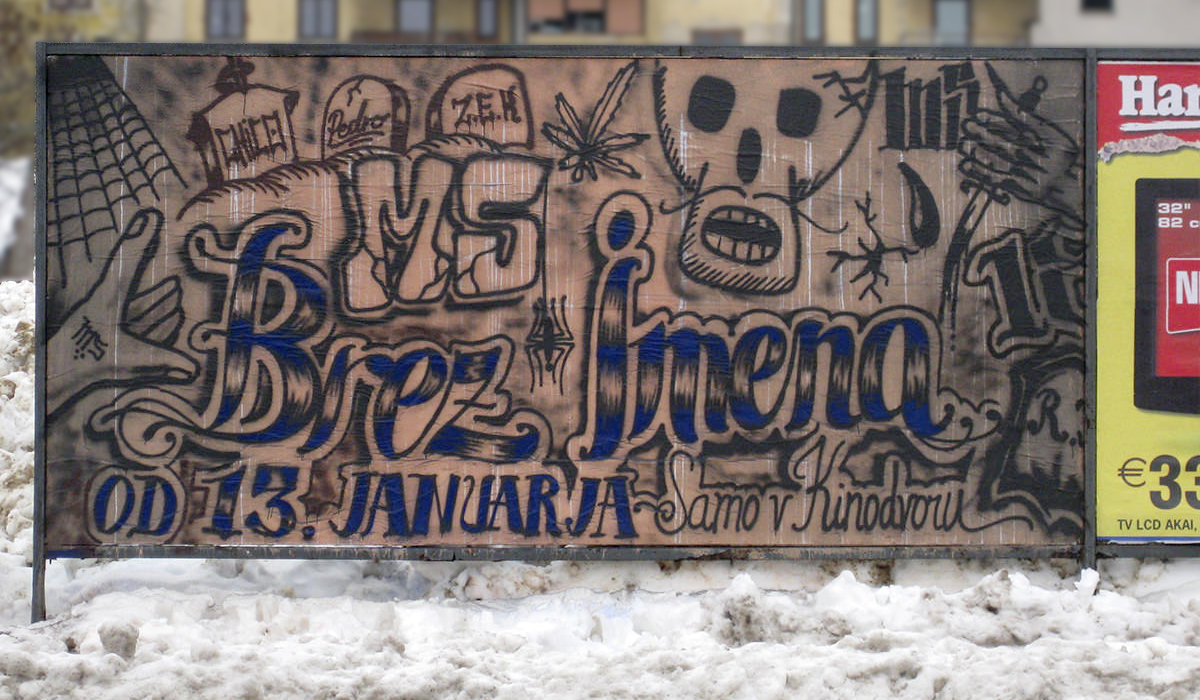 CHICO
Pedro
Z.E.K
MS
Brez Imena
OD 13. JANUARJA
Samo v Kinodvoru
R.
Har
32"
82 c
N
€33
TV LCD AKAI,